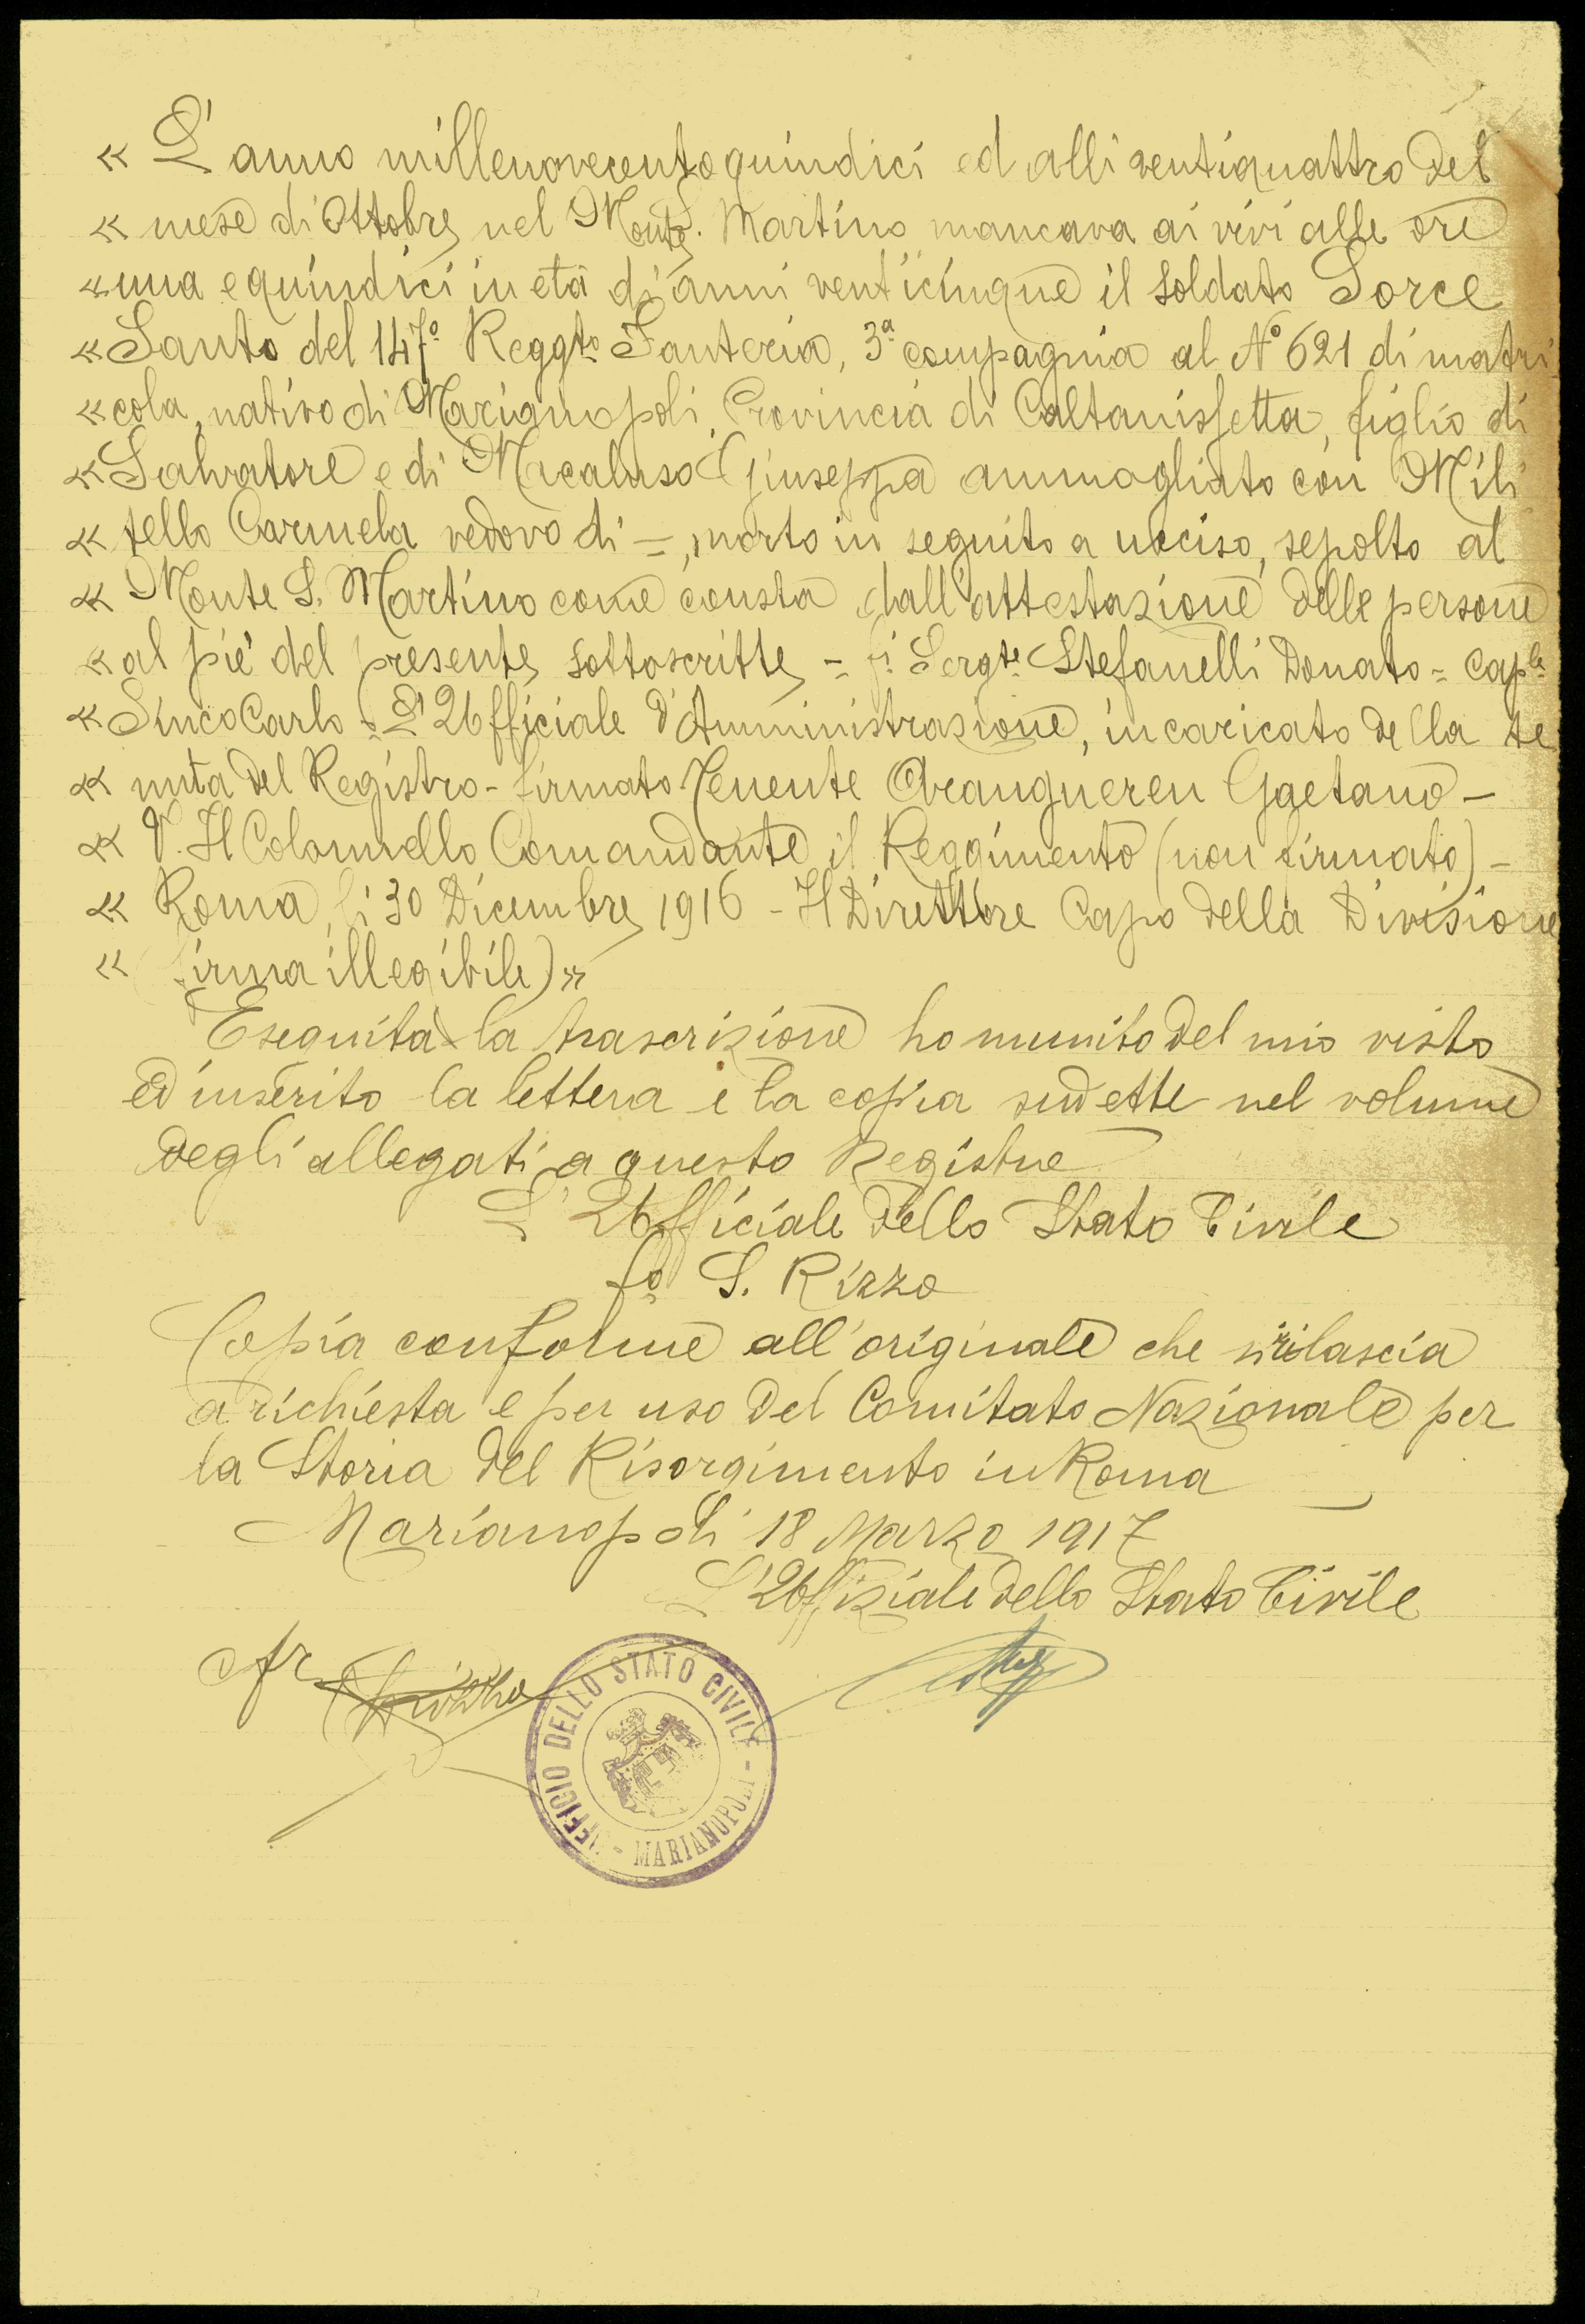 « L'anno millenovecentoquindici ed alli ventiquattro del
« mese di Ottobre nel Monte S. Martino mancava ai vivi alle ore
« una e quindici in età di anni venticinque il soldato Sorce
« Santo del 147° Reggto Fanteria, 3a compagnia al N° 621 di matri
« cola, nativo di Marianopoli, Provincia di Caltanissetta, figlio di
« Salvatore e di Macaluso Giuseppa ammogliato con Mili
« tello Carmela vedovo di =, morto in seguito a ucciso, sepolto al
« Monte S. Martino come consta dall'attestazione delle persone
« al piè del presente sottoscritte - fi Sergte Stefanelli Donato = Caple
« Sinco Carlo = L'Ufficiale d'Amministrazione, incaricato della te
« nuta del Registro - firmato Tenente Arangueren Gaetano -
« V. Il Colonnello Comandante il Reggimento (non firmato) -
« Roma, li 30 Dicembre 1916 - Il Direttore Capo della Divisione
« (firma illegibile) »
Eseguita la trascrizione ho munito del mio visto
ed inserito la lettera e la copia suddette nel volume
degli allegati a questo Registro
L'Ufficiale dello Stato Civile
fo S. Rizzo
Copia conforme all'originale che si rilascia
a richiesta e per uso del Comitato Nazionale per
la Storia del Risorgimento in Roma
Marianopoli 18 Marzo 1917
L'Uffiziale dello Stato Civile
UFFICIO DELLO STATO CIVILE - MARIANOPOLI -